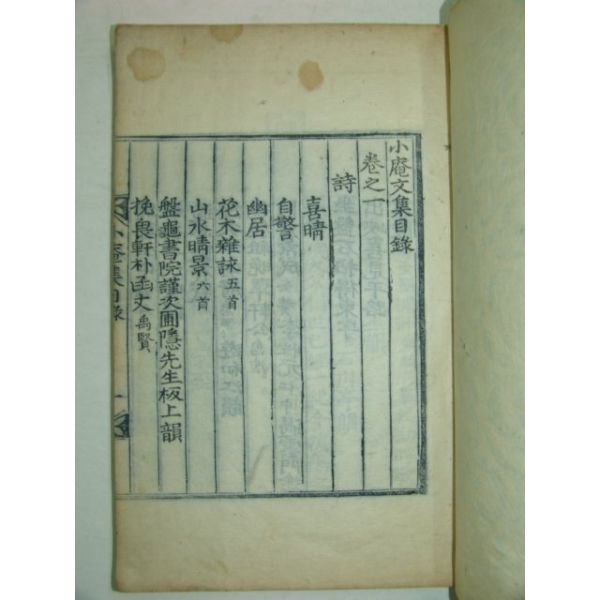 小庵文集目錄
卷之一
詩
喜晴
自警
幽居
花木雜詠五首
山水晴景六首
盤龜書院謹次圃隱先生板上韻
挽畏軒朴函丈禹賢
小庵集目錄
一